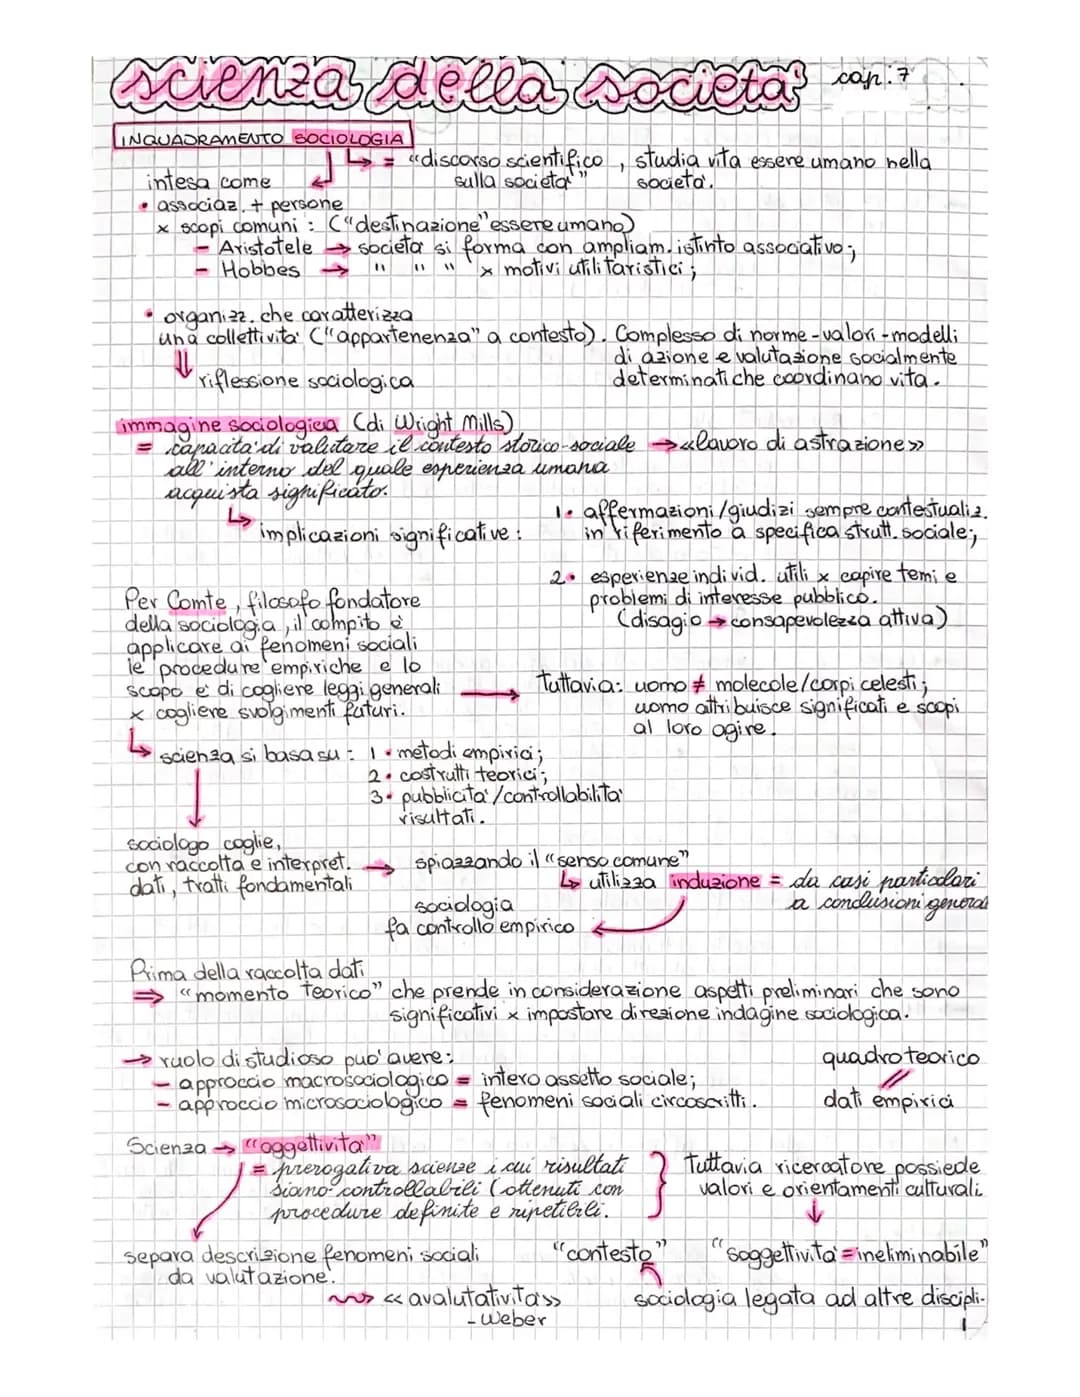 scienza della società cap. 7
INQUADRAMENTO SOCIOLOGIA
= «discorso scientifico, studia vita essere umano nella
sulla società" società.
intesa come
• associaz. + persone
x scopi comuni: ("destinazione" essere umano)
- Aristotele → società si forma con ampliam. istinto associativo;
- Hobbes → " " " x motivi utilitaristici;
• organizz. che caratterizza
una collettività ("appartenenza" a contesto). Complesso di norme-valori-modelli
di azione e valutazione socialmente
determinati che coordinano vita.
⇓ riflessione sociologica
immagine sociologica (di Wright Mills)
= capacità di valutare il contesto storico-sociale → «lavoro di astrazione»
all'interno del quale esperienza umana
acquista significato.
↳ implicazioni significative:
1. affermazioni/giudizi sempre contestualiz.
in riferimento a specifica strutt. sociale;
2. esperienze individ. utili x capire temi e
problemi di interesse pubblico.
(disagio → consapevolezza attiva)
Per Comte, filosofo fondatore
della sociologia, il compito è
applicare ai fenomeni sociali
le procedure empiriche e lo
scopo è di cogliere leggi generali
x cogliere svolgimenti futuri.
→ Tuttavia: uomo ≠ molecole/corpi celesti;
uomo attribuisce significati e scopi
al loro agire.
↳ scienza si basa su: 1. metodi empirici;
2. costrutti teorici;
3. pubblicità/controllabilità
risultati.
sociologo coglie,
con raccolta e interpret. → spiazzando il «senso comune"
dati, tratti fondamentali
↳ utilizza induzione = da casi particolari
a conclusioni general
sociologia
fa controllo empirico ←
Prima della raccolta dati
⇒ "momento teorico" che prende in considerazione aspetti preliminari che sono
significativi x impostare direzione indagine sociologica.
→ ruolo di studioso può avere:
- approccio macrosociologico = intero assetto sociale;
- approccio microsociologico = fenomeni sociali circoscritti.
quadro teorico
//
dati empirici
Scienza → "oggettività"
= prerogativa scienze i cui risultati
siano controllabili (ottenuti con
procedure definite e ripetibili.
} Tuttavia ricercatore possiede
valori e orientamenti culturali
↓
separa descrizione fenomeni sociali
da valutazione.
"contesto" "soggettività = ineliminabile"
«avalutatività»
- Weber
sociologia legata ad altre discipli-
1